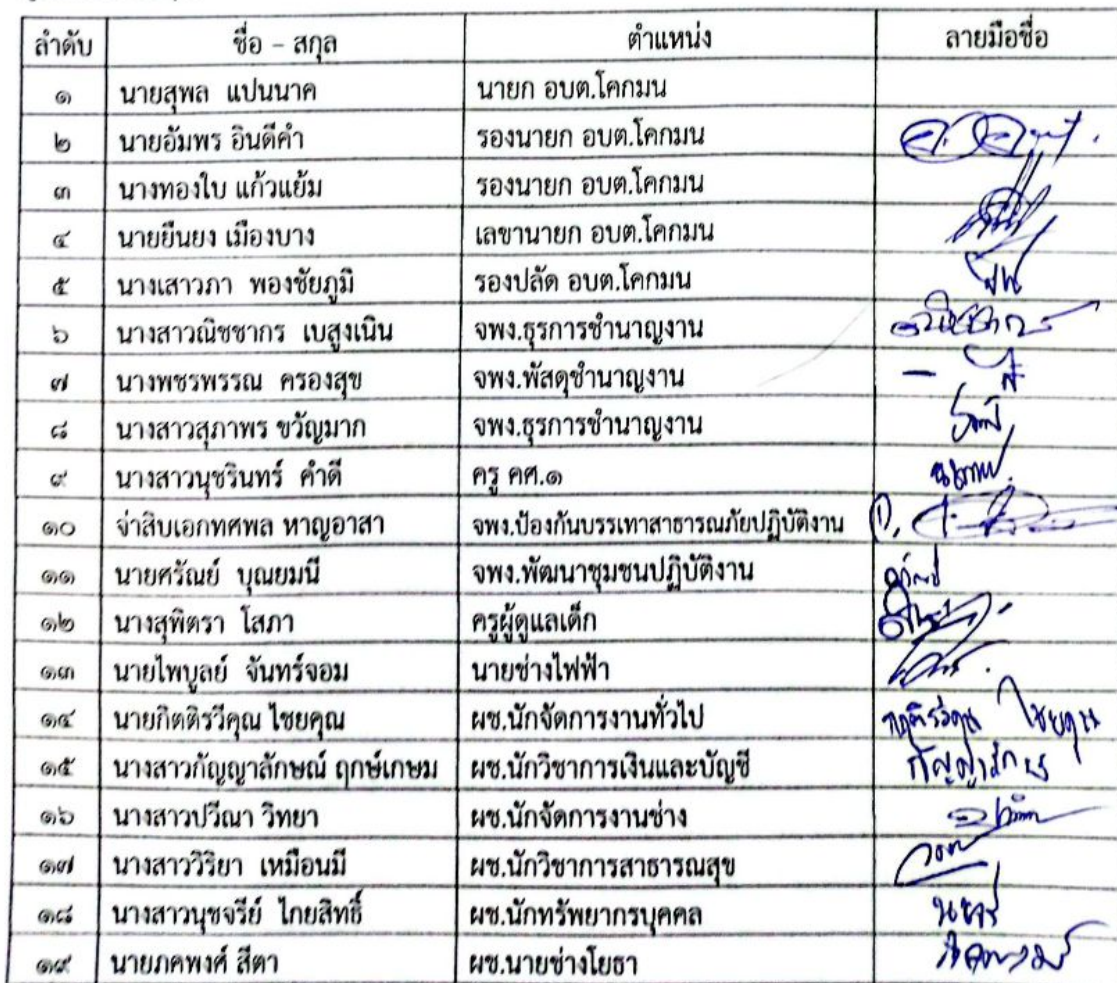 ลำดับ ชื่อ – สกุล ตำแหน่ง ลายมือชื่อ
๑ นายสุพล แปนนาค นายก อบต.โคกมน
๒ นายอัมพร อินดีคำ รองนายก อบต.โคกมน
๓ นางทองใบ แก้วแย้ม รองนายก อบต.โคกมน
๔ นายยืนยง เมืองบาง เลขานายก อบต.โคกมน
๕ นางเสาวภา พองชัยภูมิ รองปลัด อบต.โคกมน
๖ นางสาวณิชชากร เบสูงเนิน จพง.ธุรการชำนาญงาน
๗ นางพชรพรรณ ครองสุข จพง.พัสดุชำนาญงาน
๘ นางสาวสุภาพร ขวัญมาก จพง.ธุรการชำนาญงาน
๙ นางสาวนุชรินทร์ คำดี ครู คศ.๑
๑๐ จ่าสิบเอกทศพล หาญอาสา จพง.ป้องกันบรรเทาสาธารณภัยปฏิบัติงาน
๑๑ นายศรัณย์ บุณยมนี จพง.พัฒนาชุมชนปฏิบัติงาน
๑๒ นางสุพิตรา โสภา ครูผู้ดูแลเด็ก
๑๓ นายไพบูลย์ จันทร์จอม นายช่างไฟฟ้า
๑๔ นายกิตติรวีคุณ ไชยคุณ ผช.นักจัดการงานทั่วไป กิตติรวีคุณ ไชยคุณ
๑๕ นางสาวกัญญาลักษณ์ ฤกษ์เกษม ผช.นักวิชาการเงินและบัญชี
๑๖ นางสาวปวีณา วิทยา ผช.นักจัดการงานช่าง
๑๗ นางสาววิริยา เหมือนมี ผช.นักวิชาการสาธารณสุข
๑๘ นางสาวนุชจรีย์ ไกยสิทธิ์ ผช.นักทรัพยากรบุคคล
๑๙ นายภคพงศ์ สีตา ผช.นายช่างโยธา